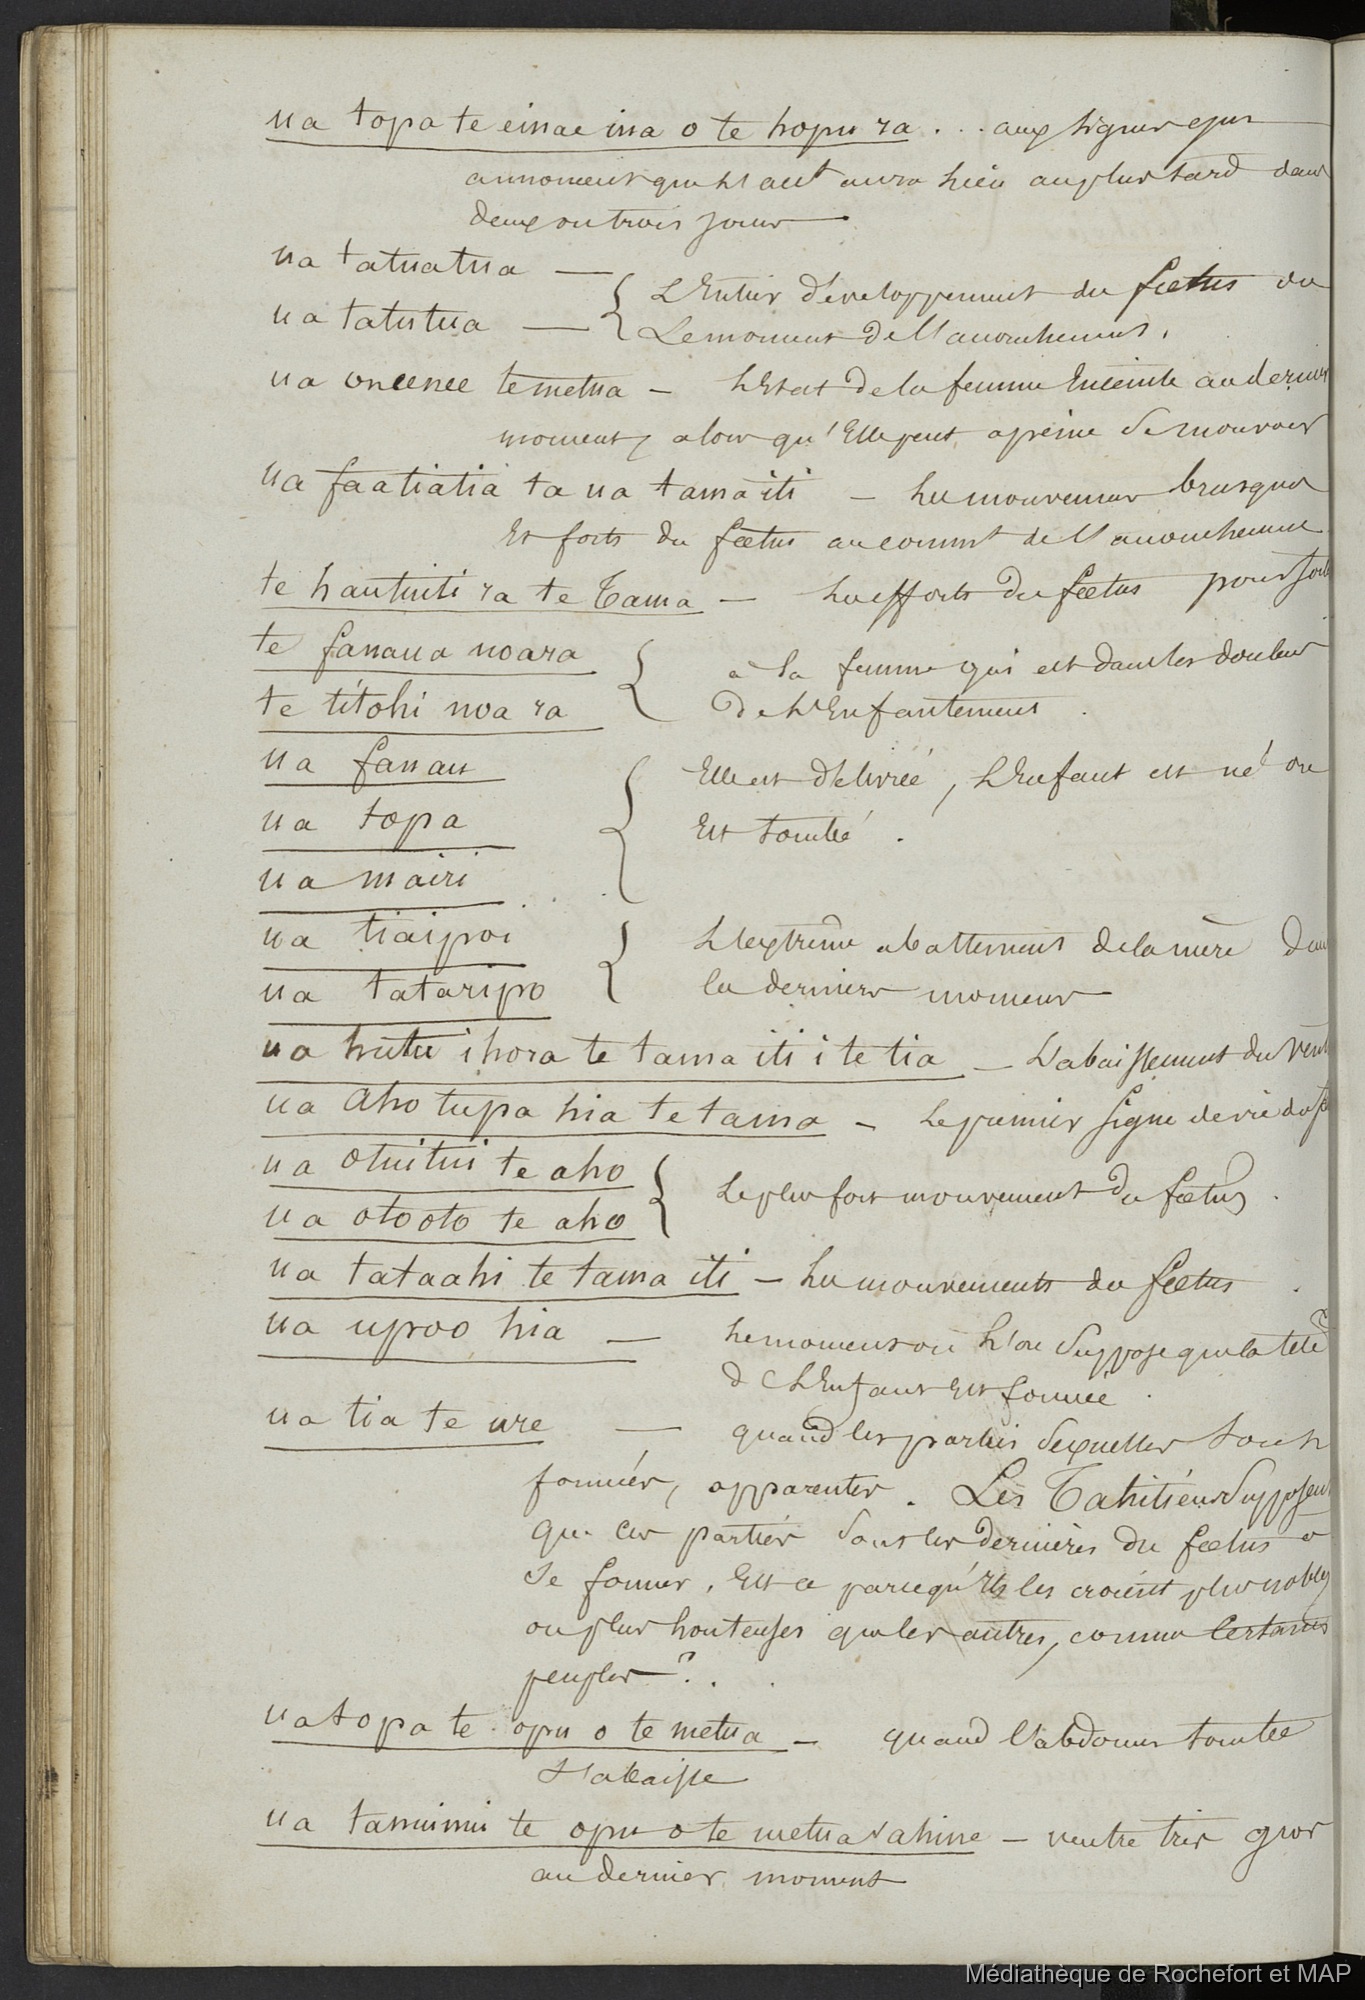 ua topa te einae ina o te hopu ra . . . aux signes qui
annoncent que l'acct aura lieu au plus tard dans
deux ou trois jours
ua tatuatua —
ua tatutua — { L'Entier développement du fœtus ou
Le moment de l'accouchement.
ua oneenee te metua — L'Etat de la femme Enceinte au dernier
moment, alors qu'Elle peut a peine se mouvoir
ua faatiatia ta ua tama iti — Les mouvemens brusques
Et forts du fœtus au commt de l'accouchement
te hautuiti ra te Tama — Les efforts du fœtus pour sortir
te fanaua noara
te titohi noa ra { a la femme qui est dans les douleurs
De L'Enfantement.
ua fanau
ua topa
ua mairi { Elle est délivrée, L'Enfant est né ou
Est tombé.
ua tiaipoi
ua tataripo { L'extrême abattement de la mère dans
les derniers momens
ua hutu ihora te tama iti i te tia — L'abaissement du ventre
ua aho tupa hia te tama — Le premier signe de vie du
ua otuitui te aho
ua otooto te aho { Le plus fort mouvement du fœtus.
ua tataahi te tama iti — Les mouvements du fœtus.
ua upoo hia — Le moment où L'on suppose que la tete
de L'Enfant Est formée.
ua tia te ure — quand les parties sexuelles sont
formées, apparentes. Les Tahitiens supposent
que ces parties sont les dernières du fœtus a
se former. Est ce parcequ'ils les croient plus nobles
ou plus honteuses que les autres, comme certains
peuples ?.
ua topa te opu o te metua — quand l'abdomen tombe
s'abaisse
ua tamuimui te opu o te metua vahine — ventre très gros
au dernier moment
Médiathèque de Rochefort et MAP